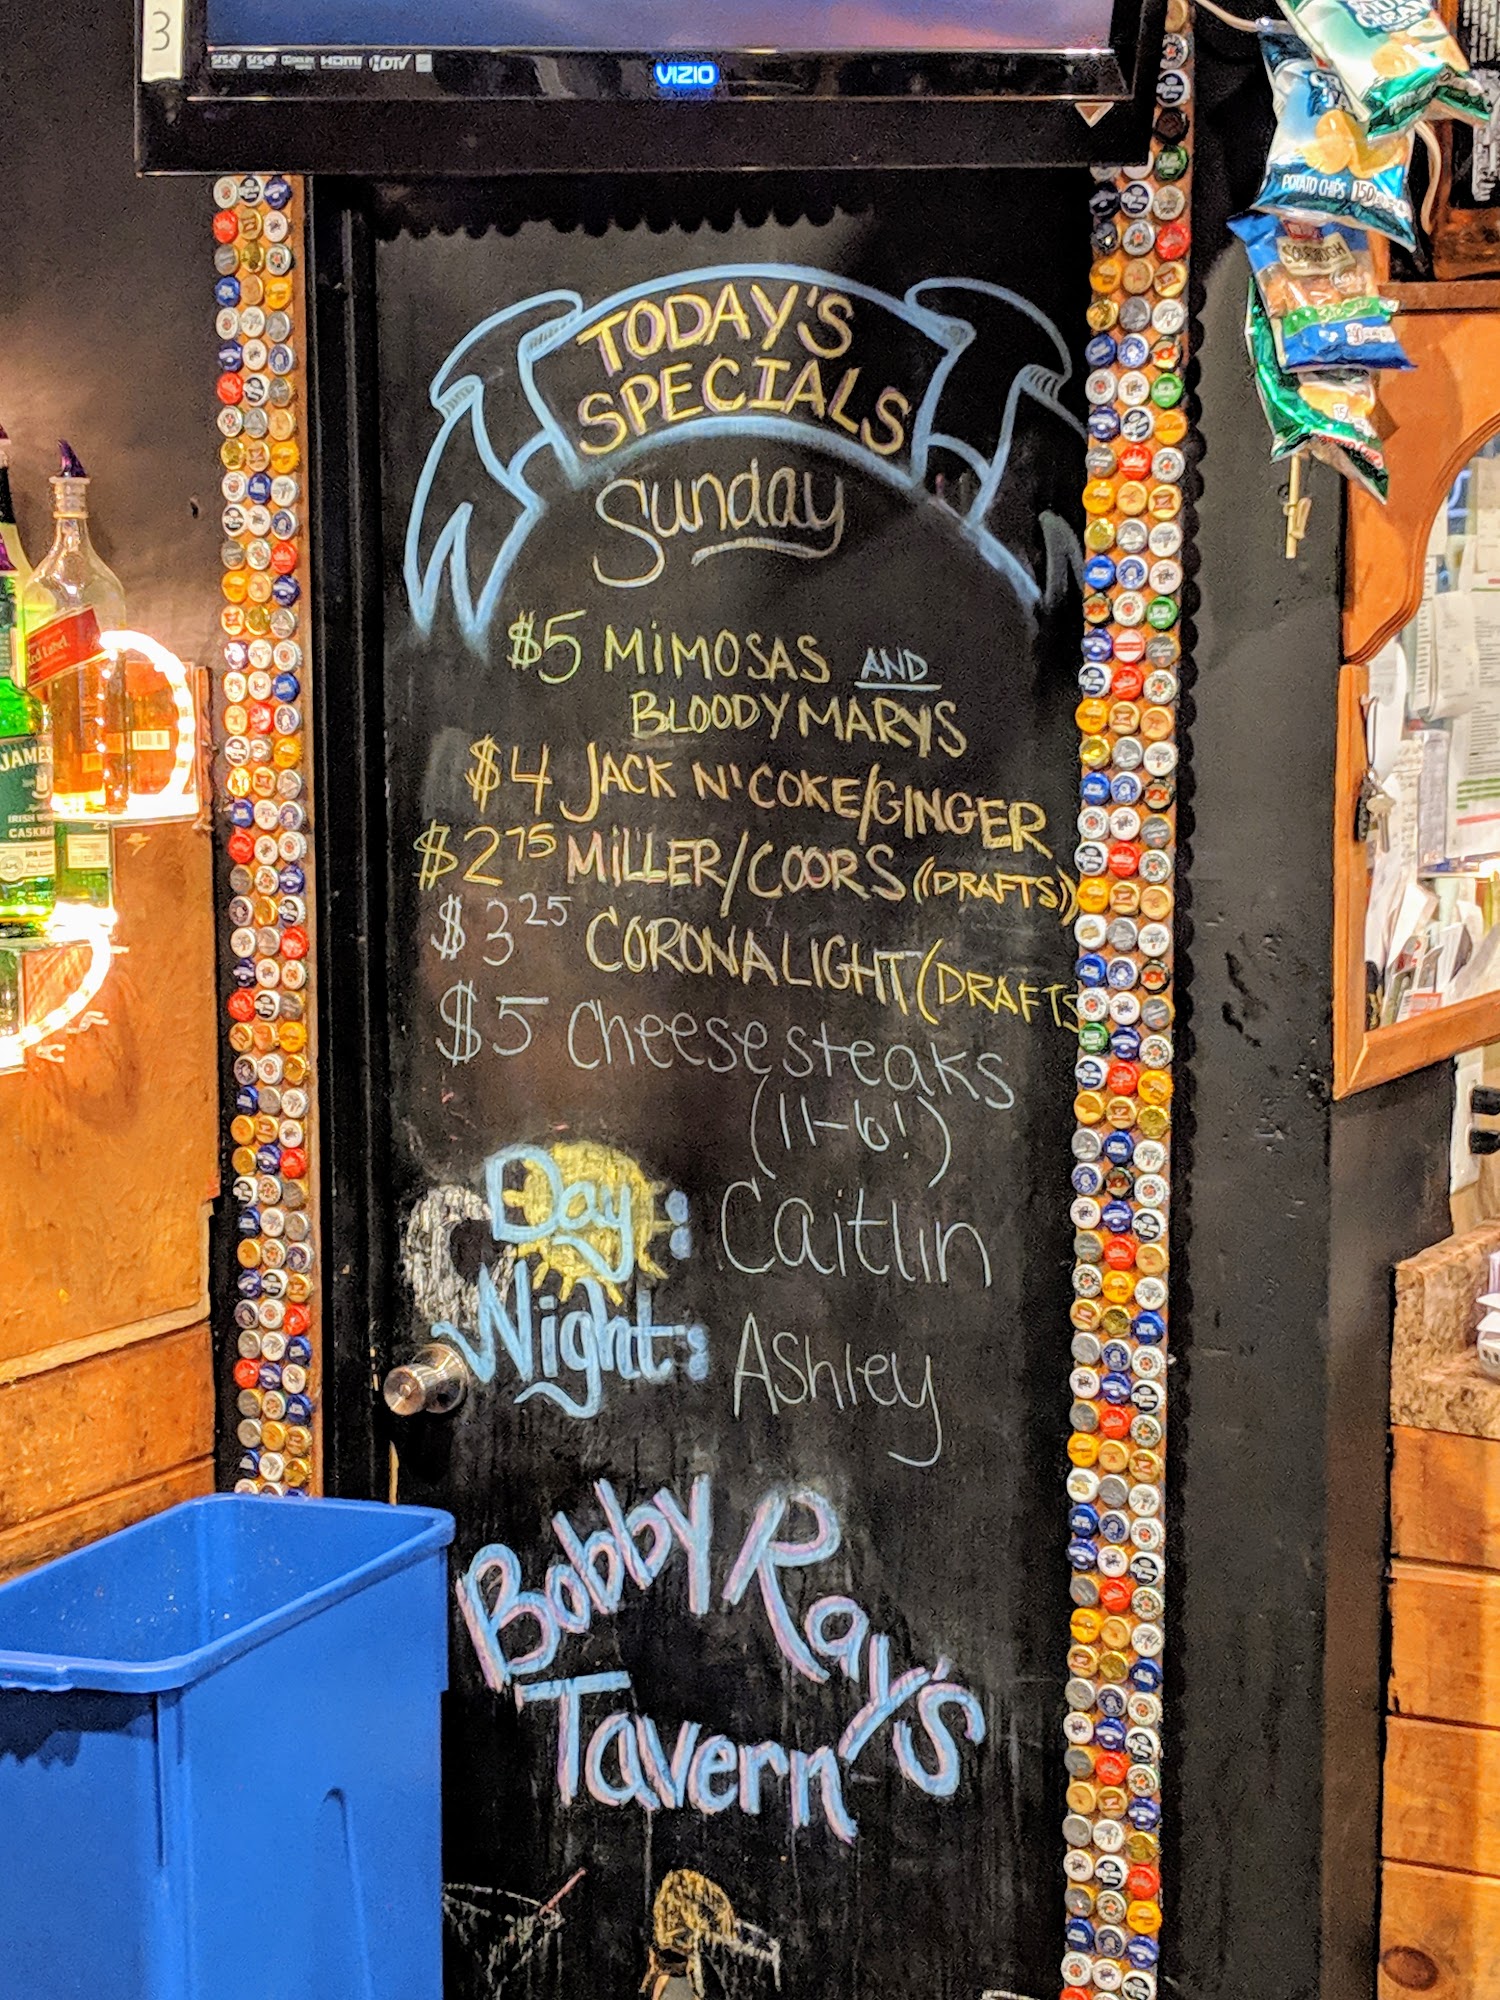 3
HDMI
HDTV
VIZIO
POTATO CHIPS 150
Red Label
JAMES
TODAY'S
SPECIALS
Sunday
$5 MiMOSAS AND
BLOODY MARYS
$4 JACK N' COKE/GINGER
$2 75 MiLLER/COORS ((DRAFTS))
$3 25 CORONA LIGHT (DRAFTS
$5 Cheesesteaks
(11-6!)
Day: Caitlin
Night: Ashley
Bobby Ray's
Tavern